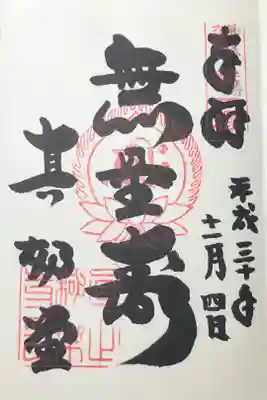 奉拝
平成三十年
十二月四日
無量寿
真如堂